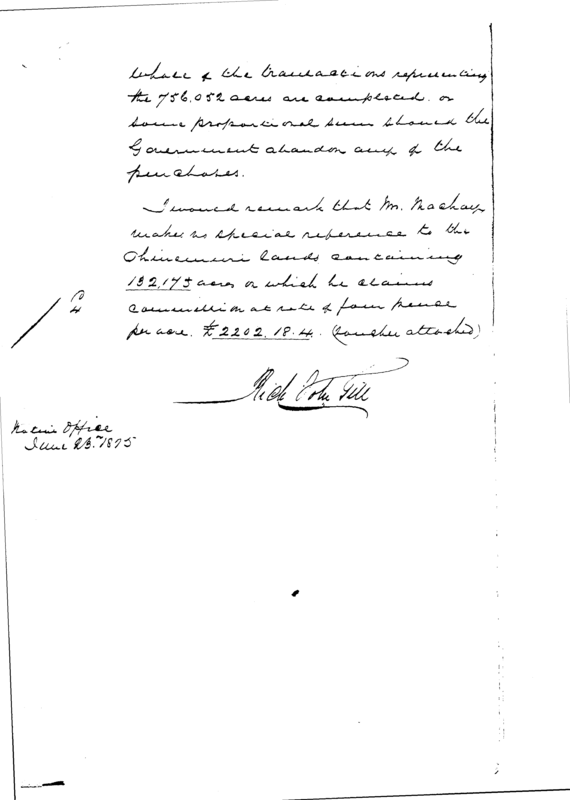 whole of the transactions representing
the 756,052 acres are completed or
some proportional sum should the
Government abandon any of the
purchases.
I would remark that Mr. Mackay
makes no special reference to the
Ohinemuri lands containing
132,175 acres on which he claims
commission at rate of four pence
per acre. £2202.18.4. (voucher attached)
Rich John Gill
Native Office
June 23rd 1875